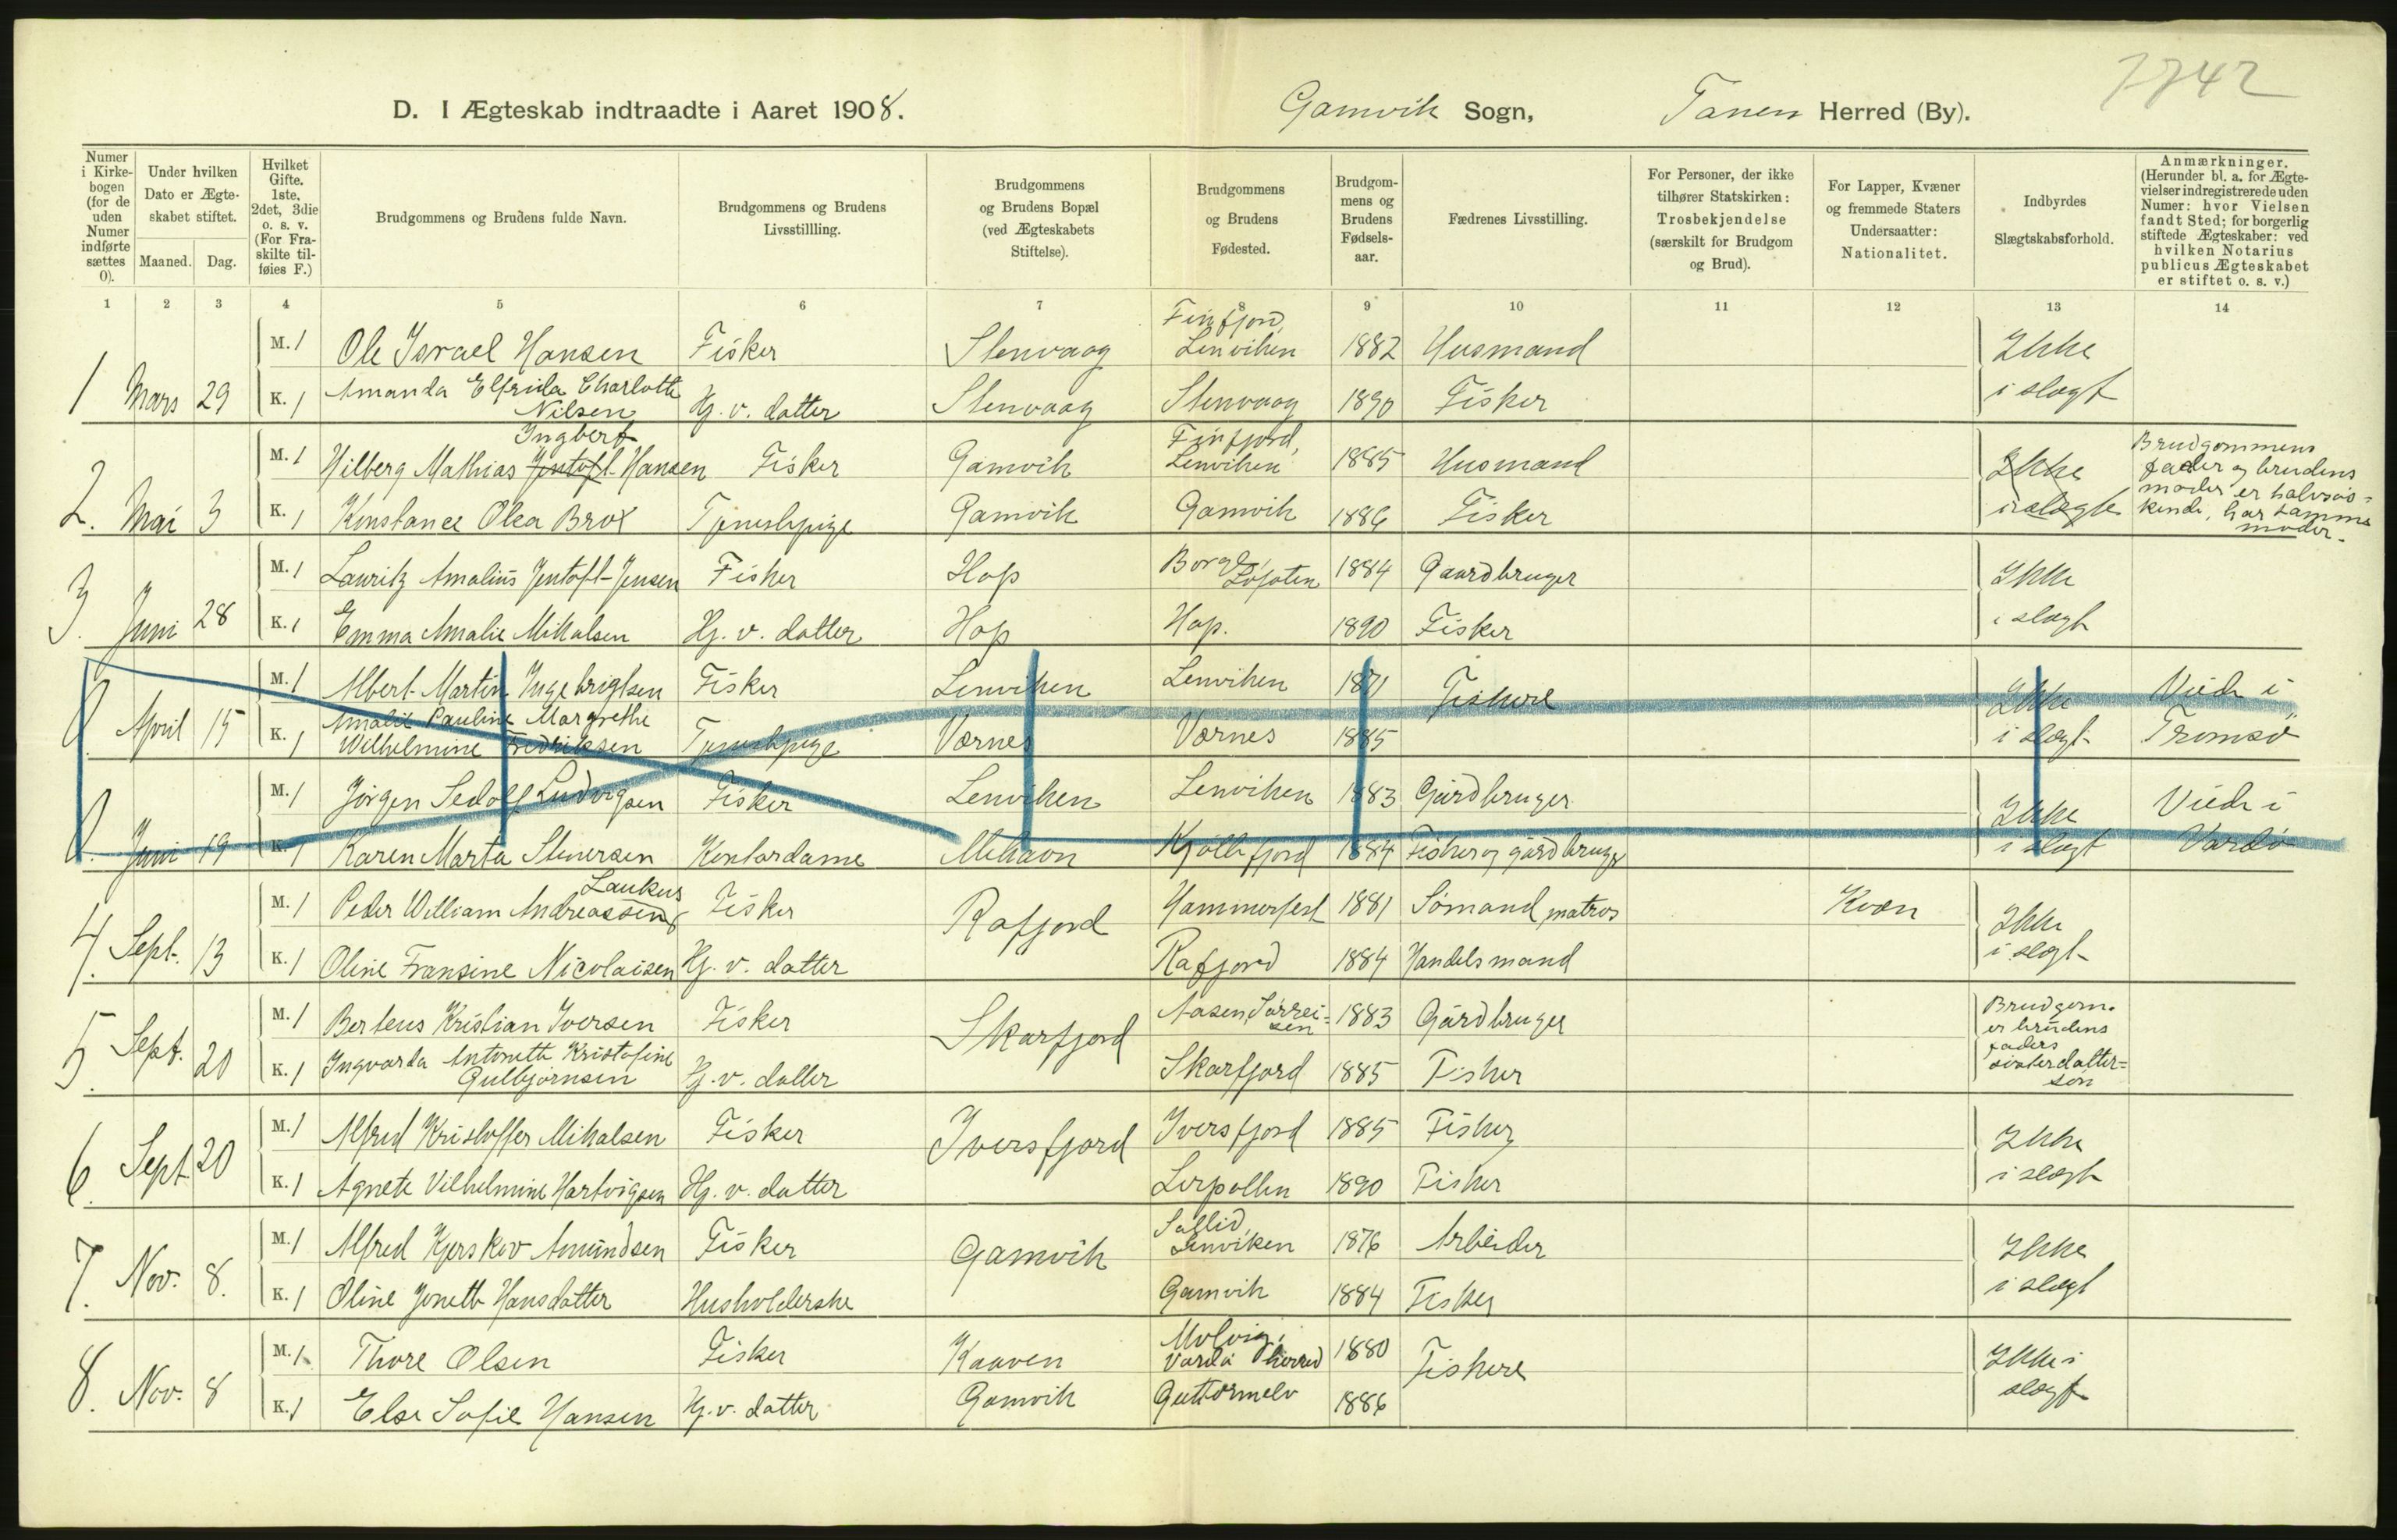 7742
D. I Ægteskab indtraadte i Aaret 1908. Gamvik Sogn, Tanen Herred (By).
Numer i Kirke-bogen (for de uden Numer indførte sættes 0).
Under hvilken Dato er Ægte-skabet stiftet.
Maaned. Dag.
Hvilket Gifte. 1ste, 2det, 3die o. s. v. (For Fra-skilte til-føies F.)
Brudgommens og Brudens fulde Navn.
Brudgommens og Brudens Livsstillling.
Brudgommens og Brudens Bopæl (ved Ægteskabets Stiftelse).
Brudgommens og Brudens Fødested.
Brudgom-mens og Brudens Fødsels-aar.
Fædrenes Livsstilling.
For Personer, der ikke tilhører Statskirken: Trosbekjendelse (særskilt for Brudgom og Brud).
For Lapper, Kvæner og fremmede Staters Undersaatter: Nationalitet.
Indbyrdes Slægtskabsforhold.
Anmærkninger. (Herunder bl. a. for Ægte-vielser indregistrerede uden Numer: hvor Vielsen fandt Sted; for borgerlig stiftede Ægteskaber: ved hvilken Notarius publicus Ægteskabet er stiftet o. s. v.)
1 2 3 4 5 6 7 8 9 10 11 12 13 14
M. 1 Ole Israel Hansen Fisker Stenvaag Finfjord, Lenviken 1882 Husmand Ikke
1 Mars 29 K. 1 Amanda Elfrida Charlotte Nilsen Hj. v. datter Stenvaag Stenvaag 1890 Fisker i slægt
M. 1 Hilberg Mathias Jentoft Ingbert Hansen Fisker Gamvik Finfjord, Lenviken 1885 Husmand Ikke
2. Mai 3 K. 1 Konstance Olea Brox Tjenestepige Gamvik Gamvik 1886 Fisker i slægt
Brudgommens
fader og brudens
moder er halvsøs-
kende, har samme
moder.
M. 1 Lauritz Amalius Jentoft Jensen Fisker Hop Borge, Lofoten 1884 Gaardbruger Ikke
3. Juni 28 K. 1 Emma Amalie Mikalsen Hj. v. datter Hop Hop. 1890 Fisker i slægt
M. 1 Albert Martin Ingebrigtsen Fisker Lenviken Lenviken 1871 Fiskere Ikke Viede i
0. April 15 K. 1 Amalie Pauline Margrethe Wilhelmine Fredriksen Tjenestepige Værnes Værnes 1885 i slægt Tromsø
M. 1 Jørgen Sedolf Ludvigsen Fisker Lenviken Lenviken 1883 Gårdbruger Ikke Viede i
0. Juni 19 K. 1 Karen Marta Stenersen Kontordame Mehavn Kjøllefjord 1884 Fisker og gårdbruger i slægt Vardø
M. 1 Peder William Andreassen Laukus Fisker Rafjord Hammerfest 1881 Sømand, matros Kvæn Ikke
4. Sept. 13 K. 1 Oline Fransine Nicolaisen Hj. v. datter Rafjord 1884 Handelsmand i slægt
M. 1 Berteus Kristian Iversen Fisker Skarfjord Aasen, Sørrei-sen 1883 Gårdbruger
5. Sept. 20 K. 1 Ingvarda Antonette Kristofine Gulbjørnsen Hj. v. datter Skarfjord 1885 Fisker
Brudgom.
er brudens
faders
søsterdatter-
søn
M. 1 Alfred Kristoffer Mikalsen Fisker Iversfjord Iversfjord 1885 Fisker Ikke
6. Sept 20 K. 1 Agnete Vilhelmine Hartvigsen Hj. v. datter Lerpollen 1890 Fisker i slægt
M. 1 Alfred Kjerskov Amundsen Fisker Gamvik Lenviken 1876 Arbeider Ikke
7. Nov. 8. K. 1 Oline Jonette Hansdatter Husholderske Gamvik 1884 Fisker i slægt
M. 1 Thore Olsen Fisker Kaaven Molvig, Vardø herred 1880 Fiskere Ikke i
8. Nov. 8 K. 1 Else Sofie Hansen Hj. v. datter Gamvik Guttormelv 1886 slægt